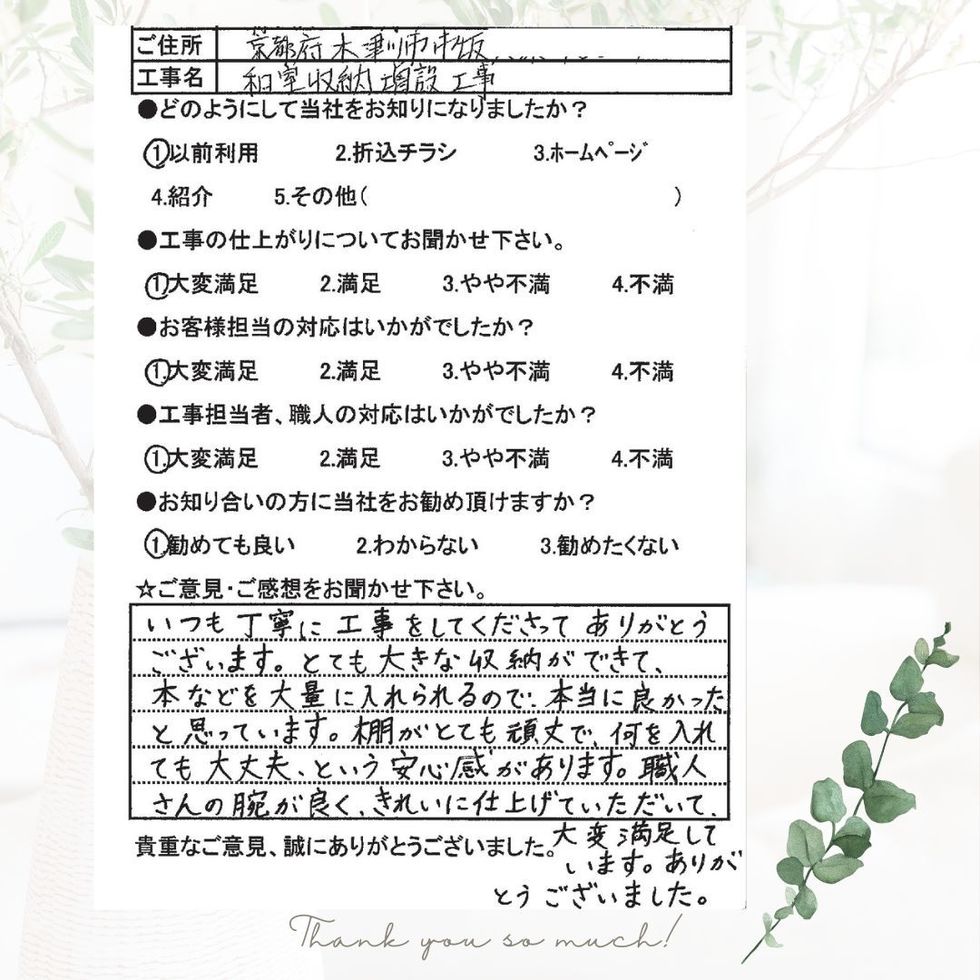 ご住所 京都府木津川市市坂
工事名 和室収納増設工事
●どのようにして当社をお知りになりましたか？
①以前利用 2.折込チラシ 3.ホームページ
4.紹介 5.その他( )
●工事の仕上がりについてお聞かせ下さい。
①大変満足 2.満足 3.やや不満 4.不満
●お客様担当の対応はいかがでしたか？
①.大変満足 2.満足 3.やや不満 4.不満
●工事担当者、職人の対応はいかがでしたか？
①.大変満足 2.満足 3.やや不満 4.不満
●お知り合いの方に当社をお勧め頂けますか？
①.勧めても良い 2.わからない 3.勧めたくない
☆ご意見・ご感想をお聞かせ下さい。
いつも丁寧に工事をしてくださってありがとう
ございます。とても大きな収納ができて、
本などを大量に入れられるので、本当に良かった
と思っています。棚がとても頑丈で、何を入れ
ても大丈夫、という安心感があります。職人
さんの腕が良く、きれいに仕上げていただいて、
貴重なご意見、誠にありがとうございました。
大変満足して
います。ありが
とうございました。
Thank you so much!